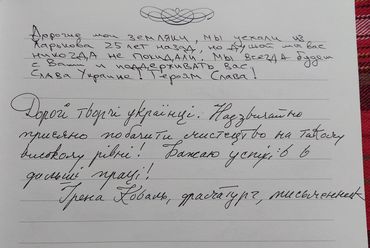 Дорогие мои земляки, мы уехали из
Харькова 25 лет назад, но душой мы вас
никогда не покидали. Мы всегда будем
с Вами и поддерживать Вас.
Слава Украине! Героям Слава!
Дорогі творчі українці. Надзвичайно
приємно побачити мистецтво на такому
високому рівні! Бажаю успіхів в
дальші праці!
Ірена Коваль, драматург, письменник